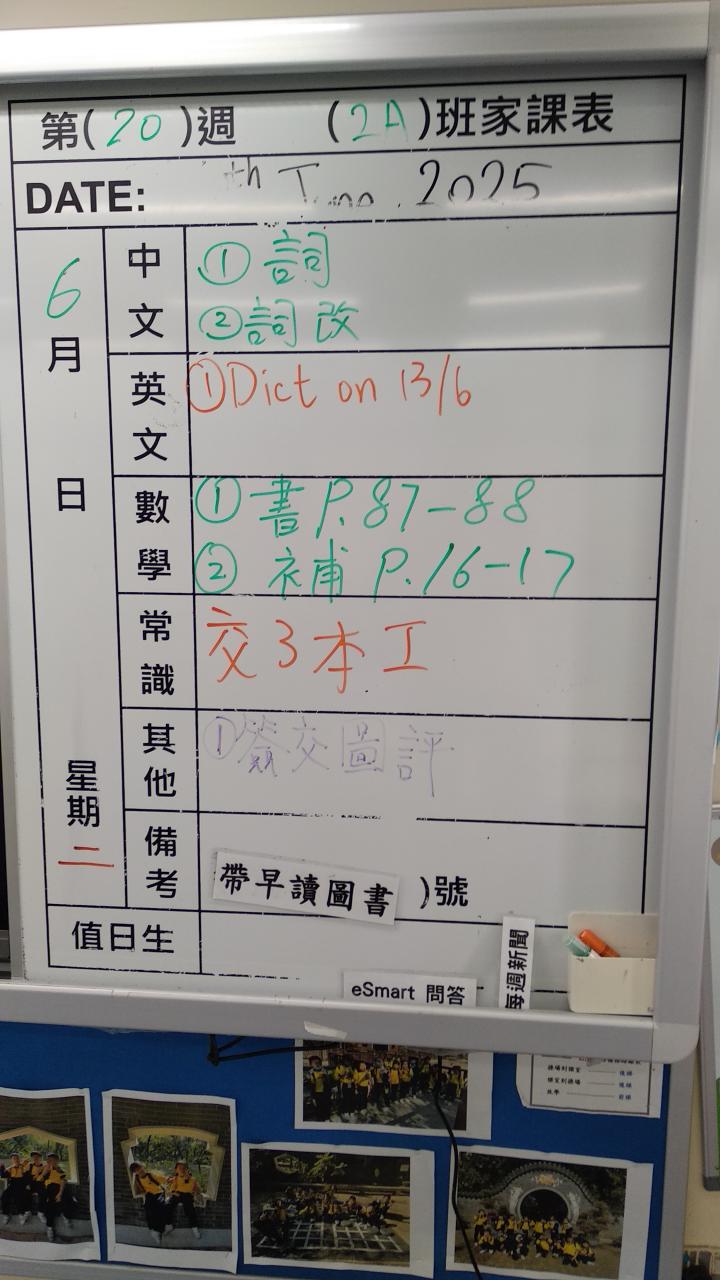 第(20)週 (2A)班家課表
DATE: th 2025
6月 日 星期二
中文
①詞
②詞改
英文
①Dict on 13/6
數學
①書P.87-88
②補P.16-17
常識
交3本工
其他
①簽交圖評
備考
帶早讀圖書 )號
值日生
每週新聞
eSmart 問答